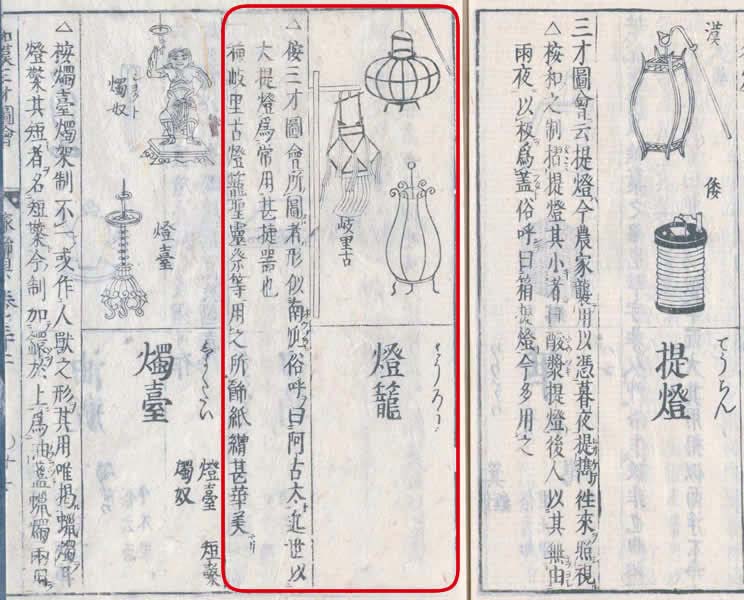 漢
倭
提燈
てうちん
三才圖會云提燈今農家襲用以憑暮夜提携往來照視
△桉和之制摺提燈其小者稱酸漿提燈後人以其無由
雨夜以板爲蓋俗呼曰箱提燈今多用之
岐里古
燈籠
とうろう
△桉三才圖會所圖者形似南瓜俗呼曰阿古太近世以
大提燈爲常用甚捷器也
種岐里古燈籠聖靈祭等用之所飾紙繒甚華美
燈臺
燭奴
燭臺
燈臺 短檠
燭奴
△桉燭臺燭架制不一或作人獸之形其用唯揭蠟燭耳
燈檠其短者名短檠今制加 於上爲油盞蠟燭兩用
漢三才圖會